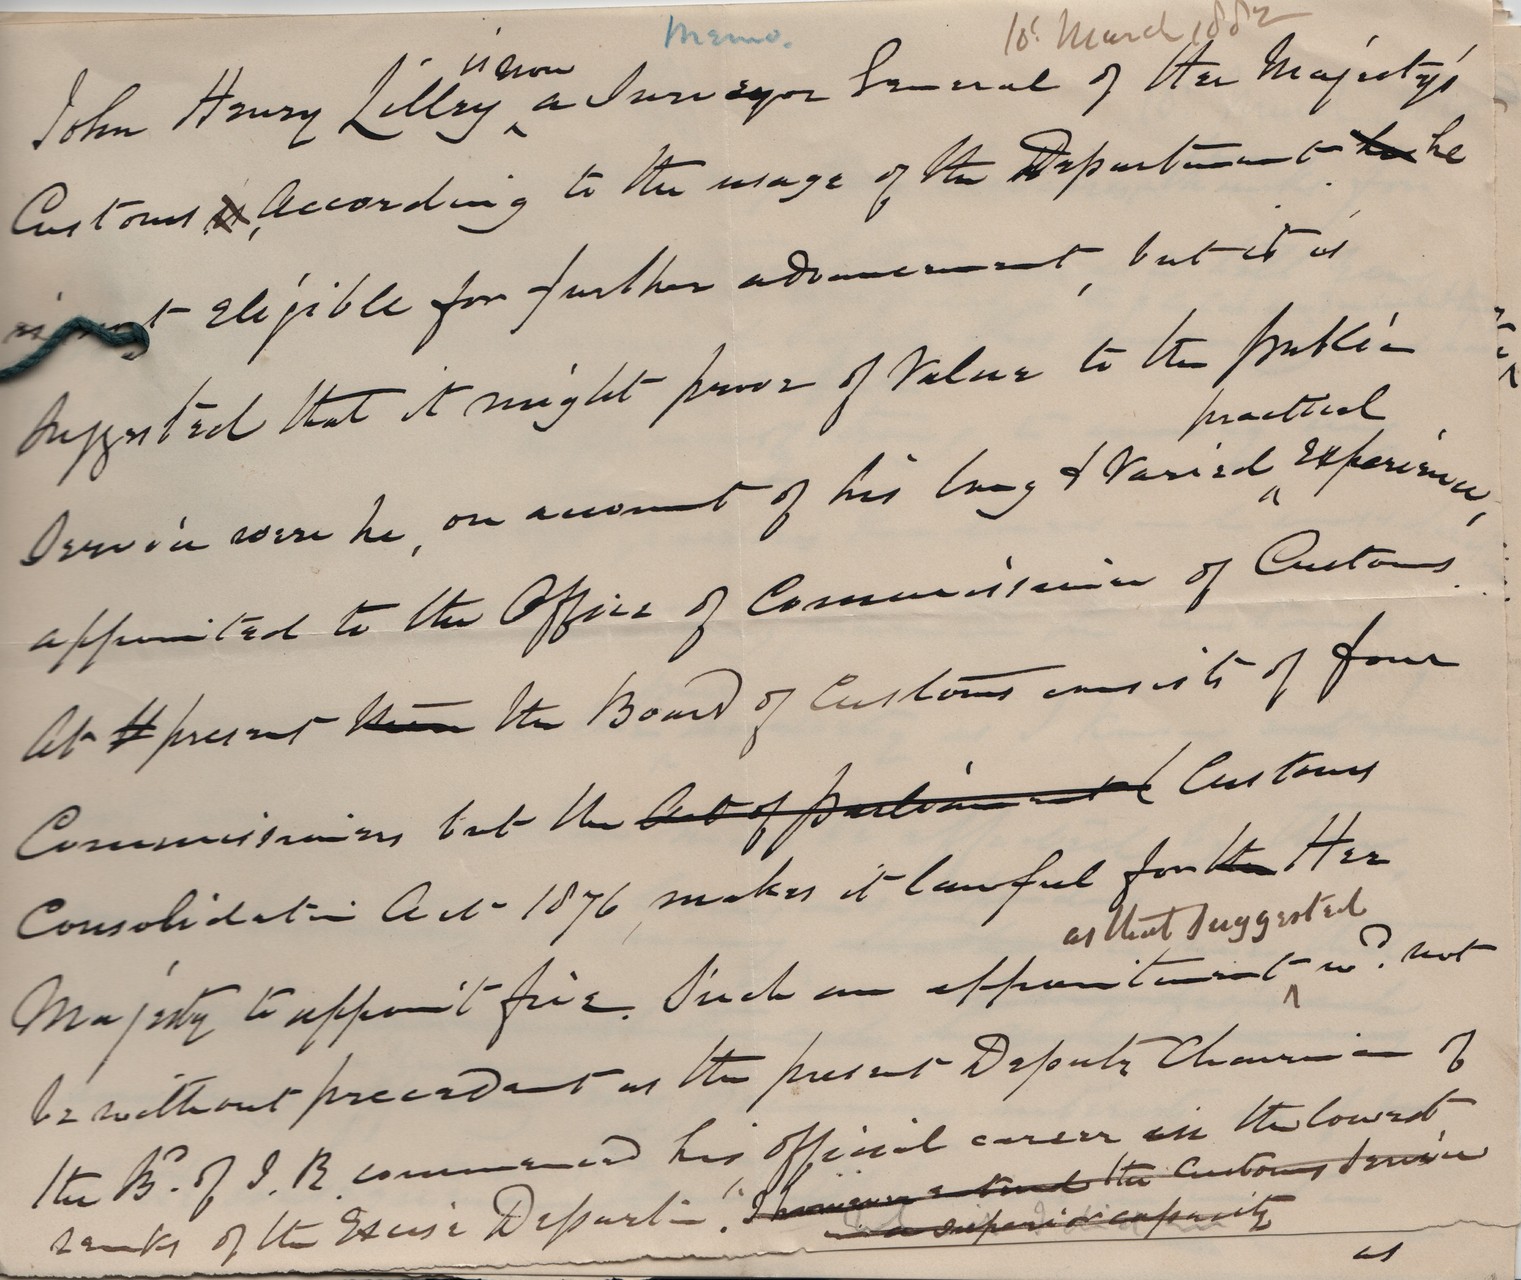 Memo. 10t March 1882
is now
John Henry Lilley a Surveyor General of Her Majesty's
Customs is, According to the usage of the Department he he
is not eligible for further advancement, but it is
suggested that it might prove of value to the public
practical
Service were he, on account of his long & varied experience,
appointed to the Office of Commissioner of Customs.
At present the Board of Customs consists of four
Commissioners but the Act of Parliament Customs
Consolidation Act 1876, makes it lawful for the Her
as that suggested
Majesty to appoint five. Such an appointment wd. not
be without precedent as the present Deputy Chairman of
the Bd. of I. R. commenced his official career in the lowest
ranks of the Excise Departm. the Customs Service
in a superior capacity
as